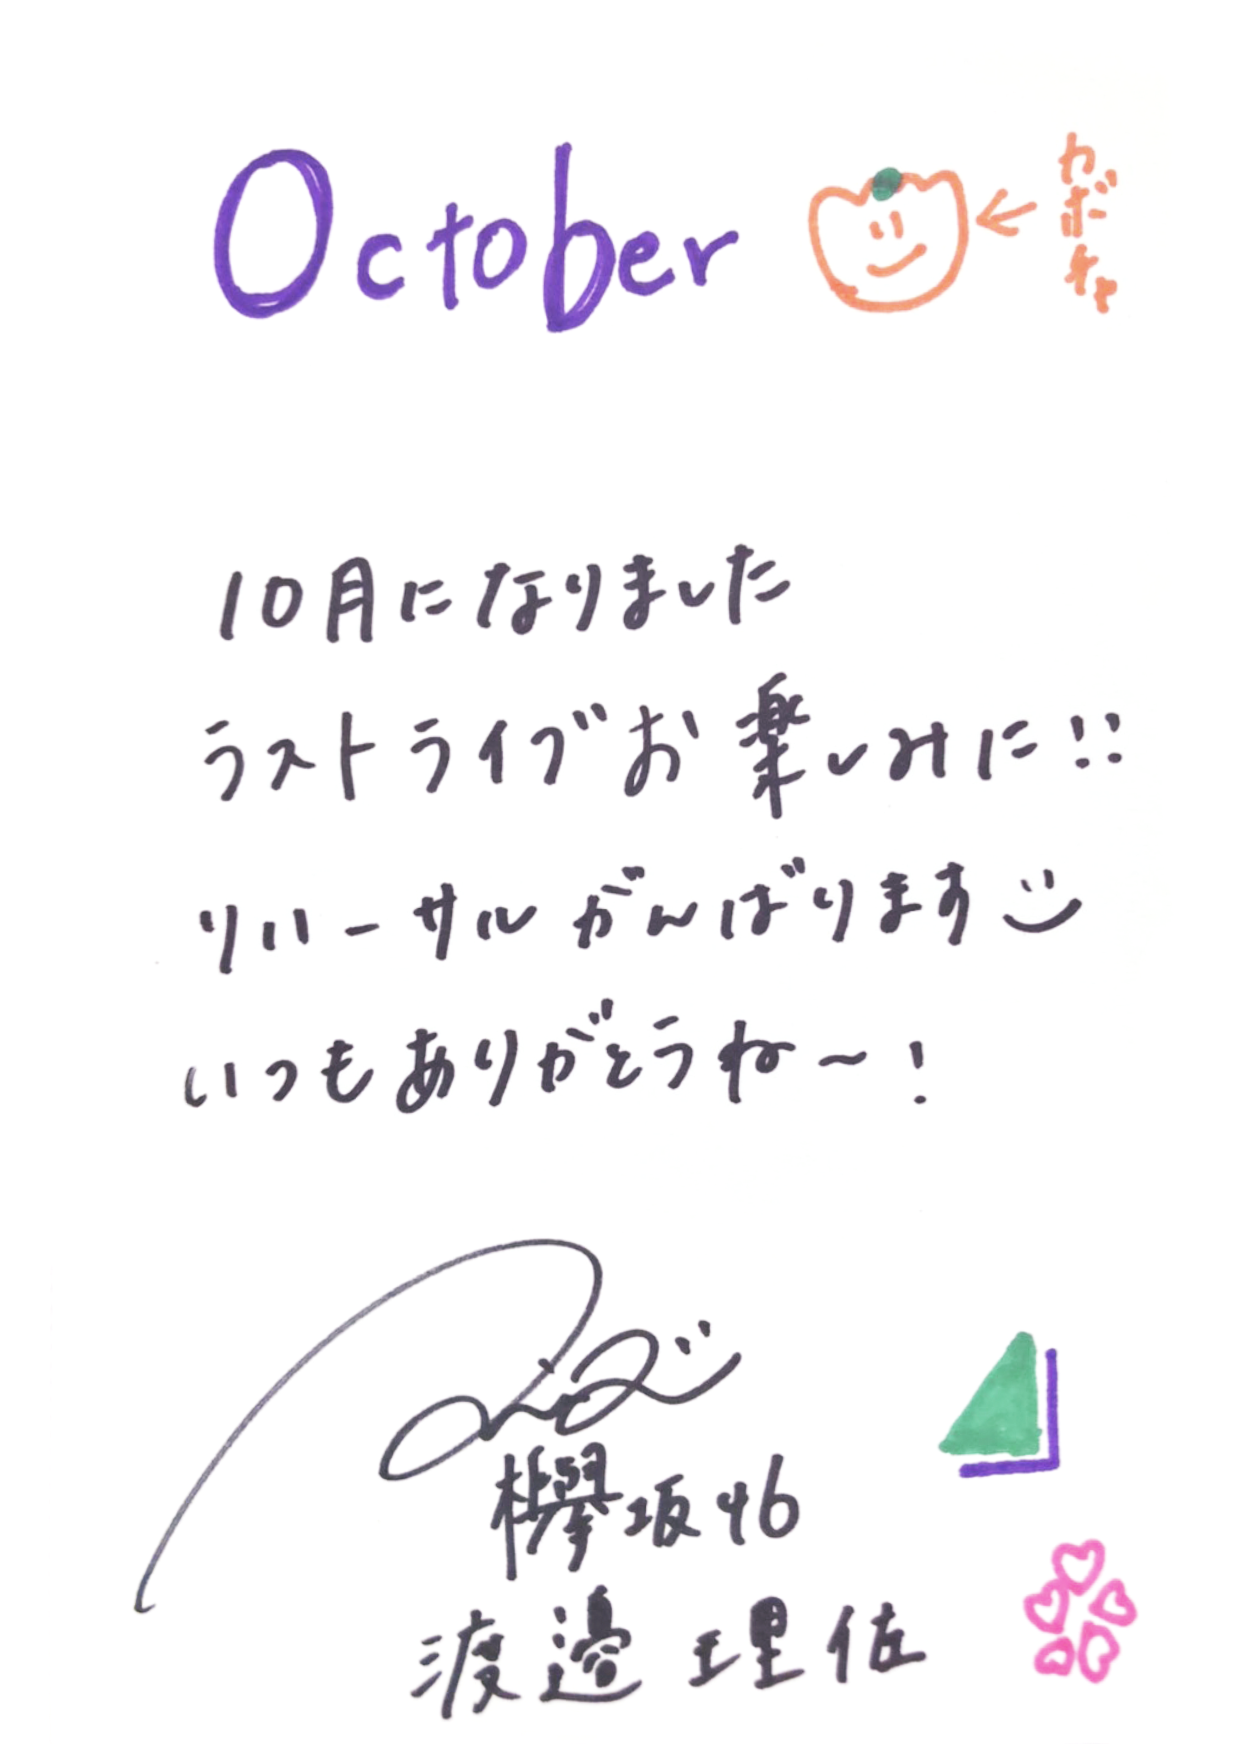 October
カボチャ
10月になりました
ラストライブお楽しみに!!
リハーサルがんばります
いつもありがとうね〜!
欅坂46
渡邉理佐